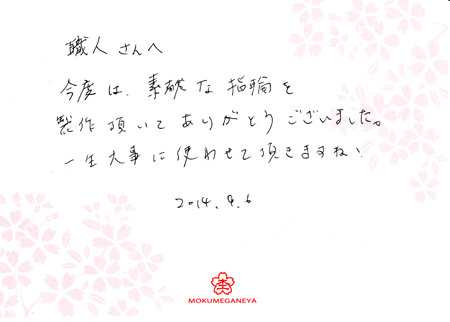 職人さんへ
今度は、素敵な指輪を
製作頂いてありがとうございました。
一生大事に使わせて頂きますね！
2014.9.6
MOKUMEGANEYA